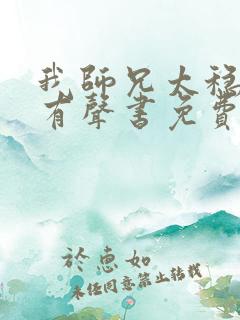 我師兄太穩
有聲書免費
於惠如
未經同意禁止轉載